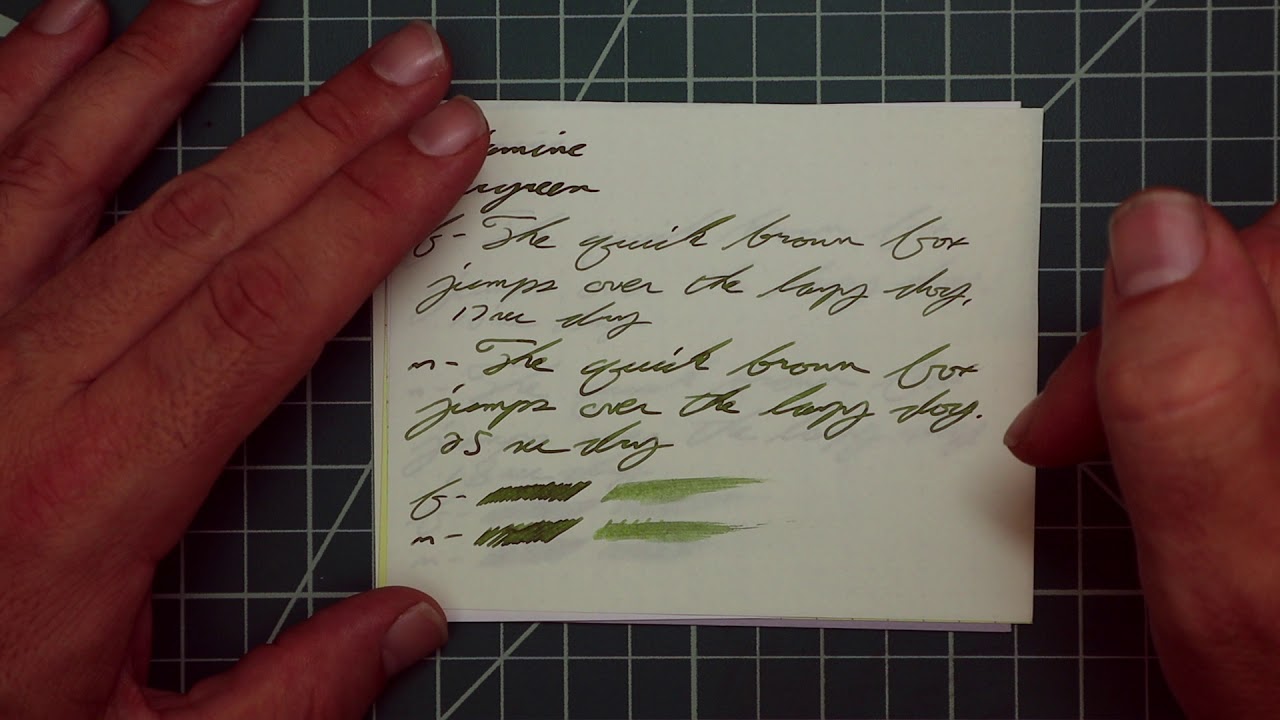 amine
rgreen
f - The quick brown fox
jumps over the lazy dog.
17 sec dry
m - The quick brown fox
jumps over the lazy dog.
25 sec dry
f -
m -